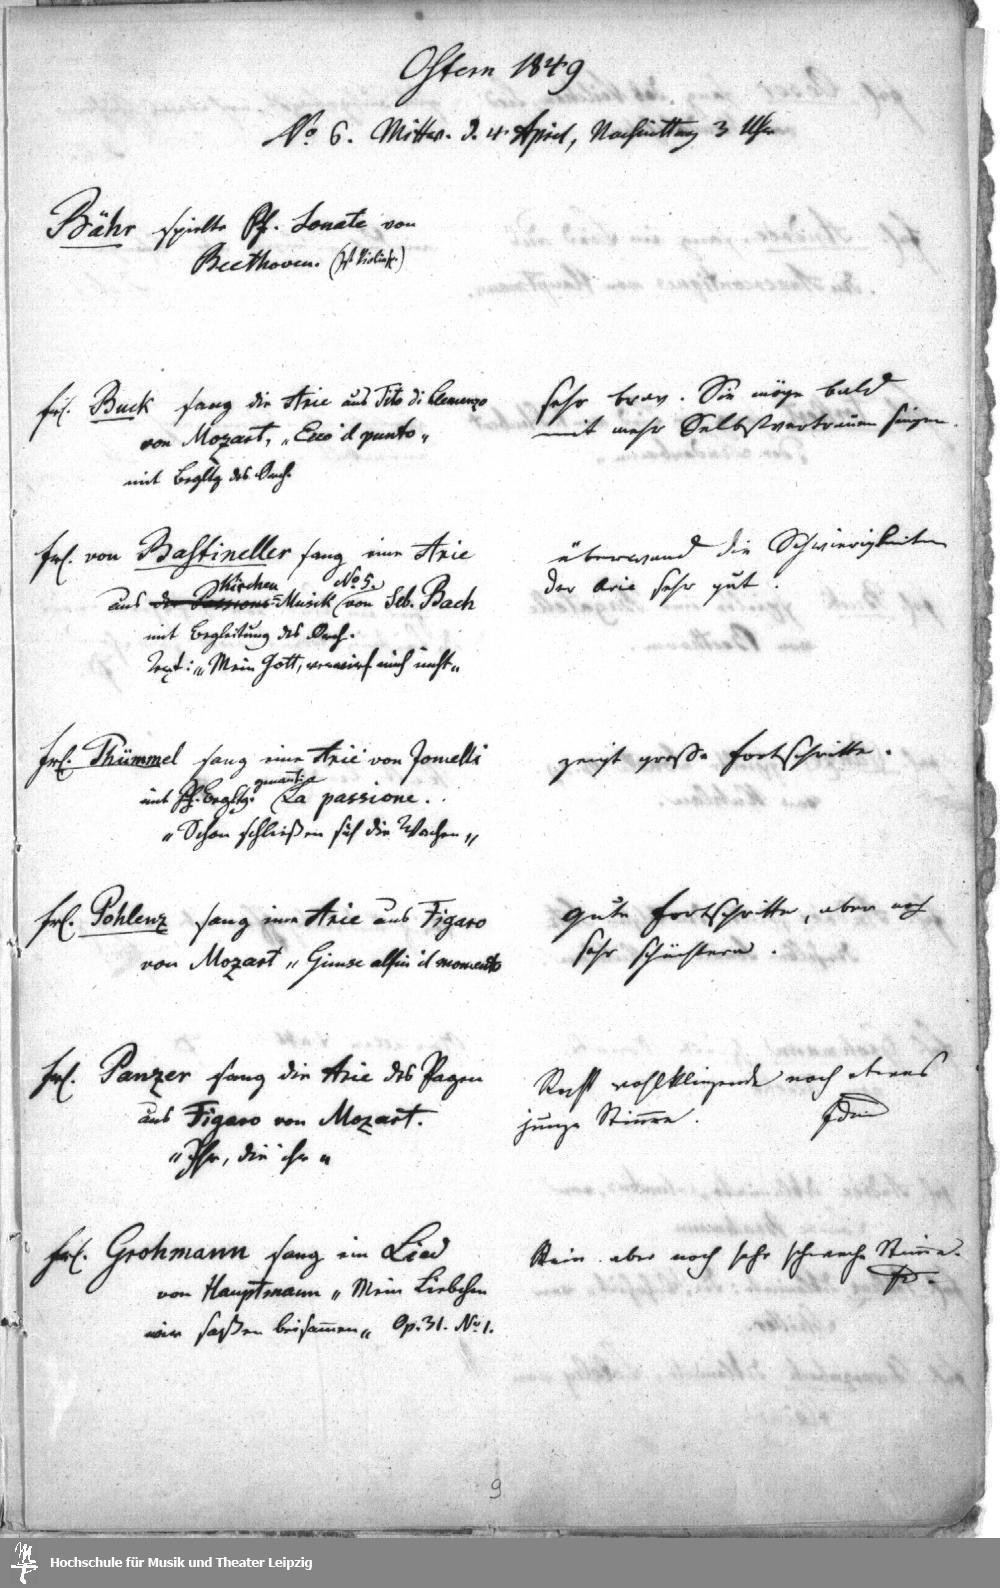 Ostern 1849
No 6. Mittw. d. 4 April, Nachmittag 3 Uhr
Bähr spielte Pf. Sonate von
Beethoven. (ist Violinsp.)
Frl. Buck sang die Arie aus Tito di Clemenza
von Mozart, „Ecco il punto„
mit Begltg des Orch.
sehr brav. Sie möge bald
mit mehr Selbstvertrauen singen.
Frl. von Bastineller sang eine Arie
aus der Passions-Kirchen Musik (No 5.) von Seb. Bach
mit Begleitung des Orch.
Text: „Mein Gott, verwirf mich nicht„
überwand die Schwierigkeiten
der Arie sehr gut.
Frl. Thümmel sang eine Arie von Jomelli
mit Pf. Begltg. (La passione.
„Schon schließen sich die Wachen„
zeigt große Fortschritte.
Frl. Pohlenz sang eine Arie aus Figaro
von Mozart „Giunse alfin il momento
gute Fortschritte, aber noch
sehr schüchtern.
Frl. Panzer sang die Arie des Pagen
aus Figaro von Mozart.
„Ihr, die ihr„
Recht wohlklingende noch etwas
junge Stimme.
Frl. Grohmann sang ein Lied
von Hauptmann „Mein Liebchen
wir saßen beisammen„ Op. 31. No 1.
Rein aber noch sehr schwache Stimme.
9
Hochschule für Musik und Theater Leipzig